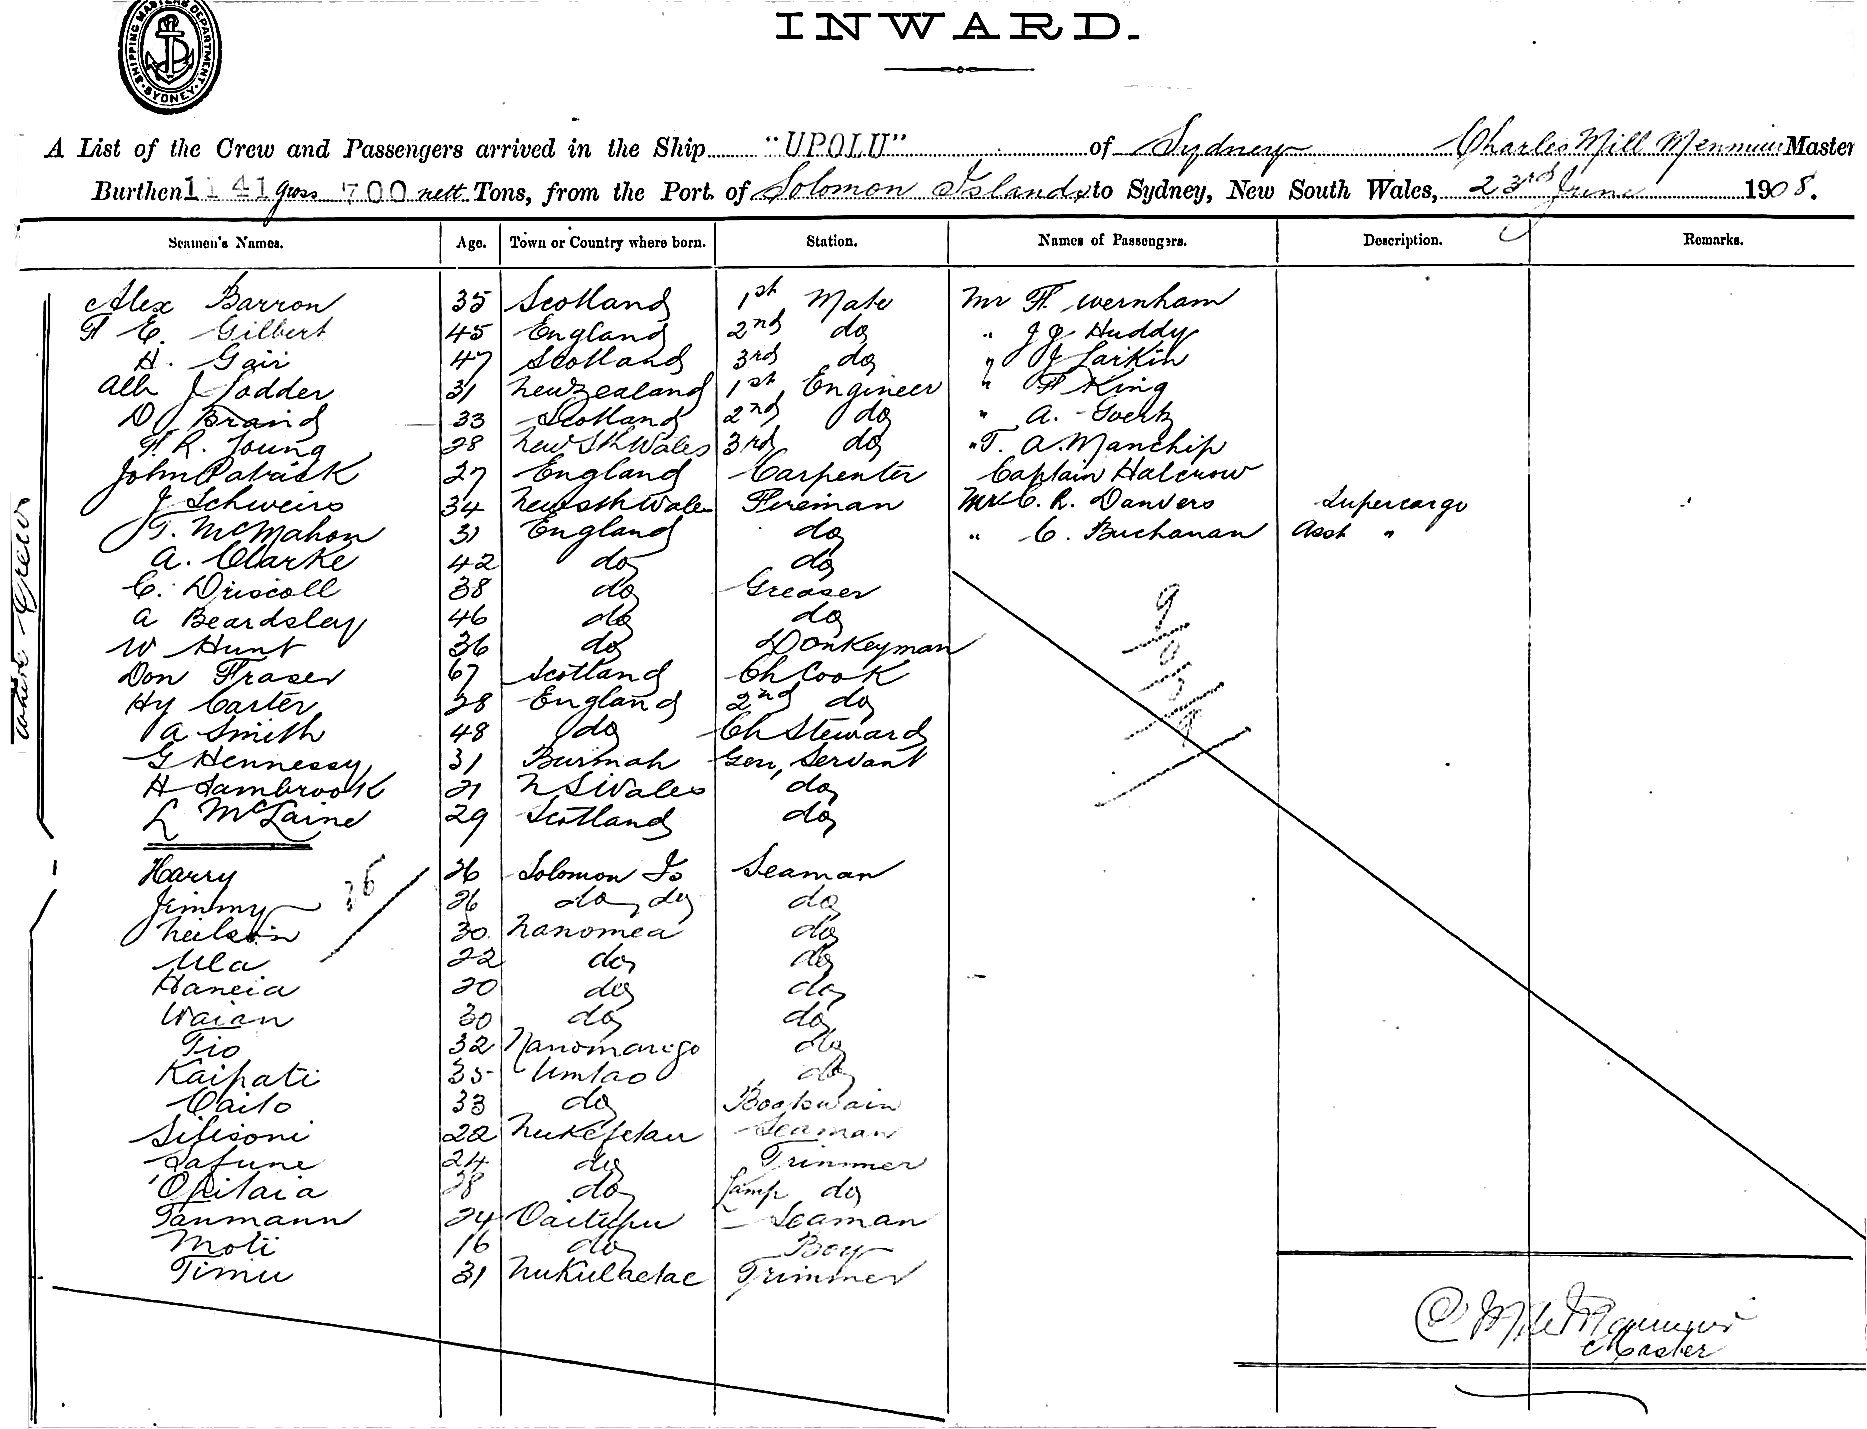 SHIPPING MASTERS DEPARTMENT SYDNEY
INWARD.
A List of the Crew and Passengers arrived in the Ship "UPOLU" of Sydney Charles Mill Master
Burthen 1141 gross 700 nett Tons, from the Port of Solomon Islands to Sydney, New South Wales, 23rd June 1908.
Seamen's Names. Age. Town or Country where born. Station. Names of Passengers. Description. Remarks.
Alex Barron 35 Scotland 1st Mate Mr F. Wernham
F E. Gilbert 45 England 2nd do " J J Huddy
H. Gair 47 Scotland 3rd do " J Larkin
Alb J Lodder 31 New Zealand 1st Engineer " F King
D J Braind 33 Scotland 2nd do " A. Goertz
F. R. Young 28 New Sth Wales 3rd do " T. A. Manchip
John Patrick 27 England Carpenter Captain Halcrow
J Schweiss 34 New Sth Wales Fireman Mr C. R. Danvers Supercargo
T. McMahon 31 England do " C. Buchanan Asst "
A. Clarke 42 do do
C. Driscoll 38 do Greaser
A Beardsley 46 do do
W Hunt 36 do Donkeyman
Don Fraser 67 Scotland Ch Cook
Hy Carter 28 England 2nd do
A Smith 48 do Ch Steward
G Hennessy 31 Burmah Gen, Servant
H Sambrook 21 N S Wales do
L McLaine 29 Scotland do
White Crew
9
Harry 26 Solomon Is Seaman
Jimmy 26 do do do
Neilson 30 Nanomea do
Ula 22 do do
Haneia 20 do do
Waian 30 do do
Tio 32 Nanomarigo do
Kaipati 35 do
Vaito 33 do Boatswain
Sifisoni 22 Nukefetau Seaman
Lafune 24 do Trimmer
Opitaia 28 do Lamp do
Tanmann 24 Vaitupu Seaman
Moti 16 do Boy
Timu 31 Nukulaelae Trimmer
C Mill
Master